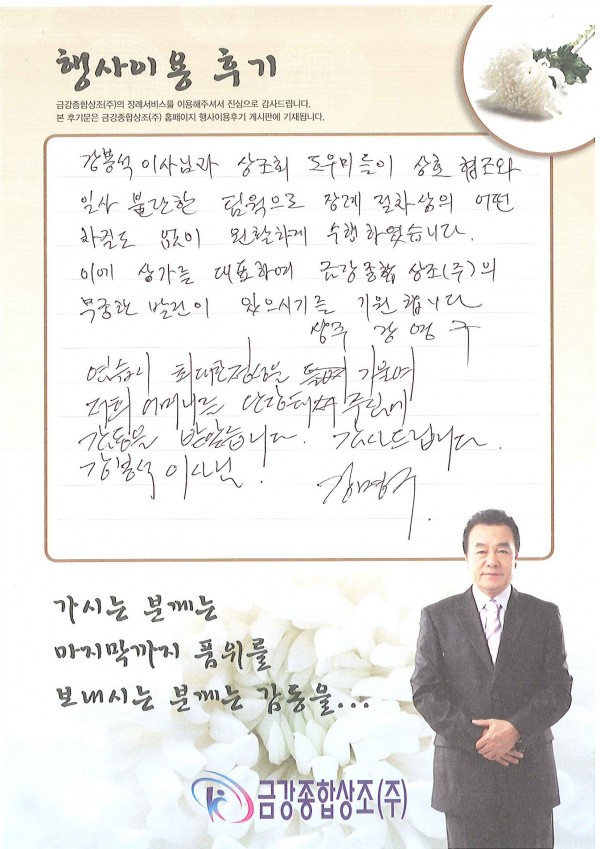 행사이용 후기
금강종합상조(주)의 장례서비스를 이용해주셔서 진심으로 감사드립니다.
본 후기문은 금강종합상조(주) 홈페이지 행사이용후기 게시판에 기재됩니다.
강봉석 이사님과 상조회 도우미들이 상호 협조와
일사 불란한 팀웍으로 장례 절차상의 어떤
차질도 없이 원활하게 수행하였습니다.
이에 상가를 대표하여 금강종합 상조(주)의
무궁한 발전이 있으시기를 기원합니다
상주 강영구
최대한 정성을 기울여
저희 어머니를 단장해 주심에
감동을 받았습니다. 감사드립니다.
강봉석 이사님.
가시는 분께는
마지막까지 품위를
보내시는 분께는 감동을...
금강종합상조(주)